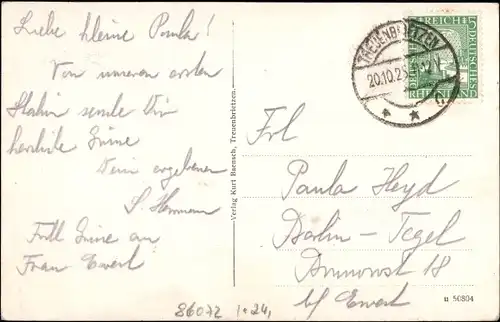 Liebe kleine Paula!
Von unserer ersten
Station sende Dir
herzliche Grüße
Dein ergebener
S. Herrmann
Frdl Grüße an
Frau Ewert
86072 1.24,
Verlag Kurt Baensch, Treuenbrietzen.
TREUENBRIETZEN
20.10.2
REICH 5
DEUTSCHES
Frl
Paula Heyd
Berlin-Tegel
Brunowstr 18
b/ Ewert
u 50804